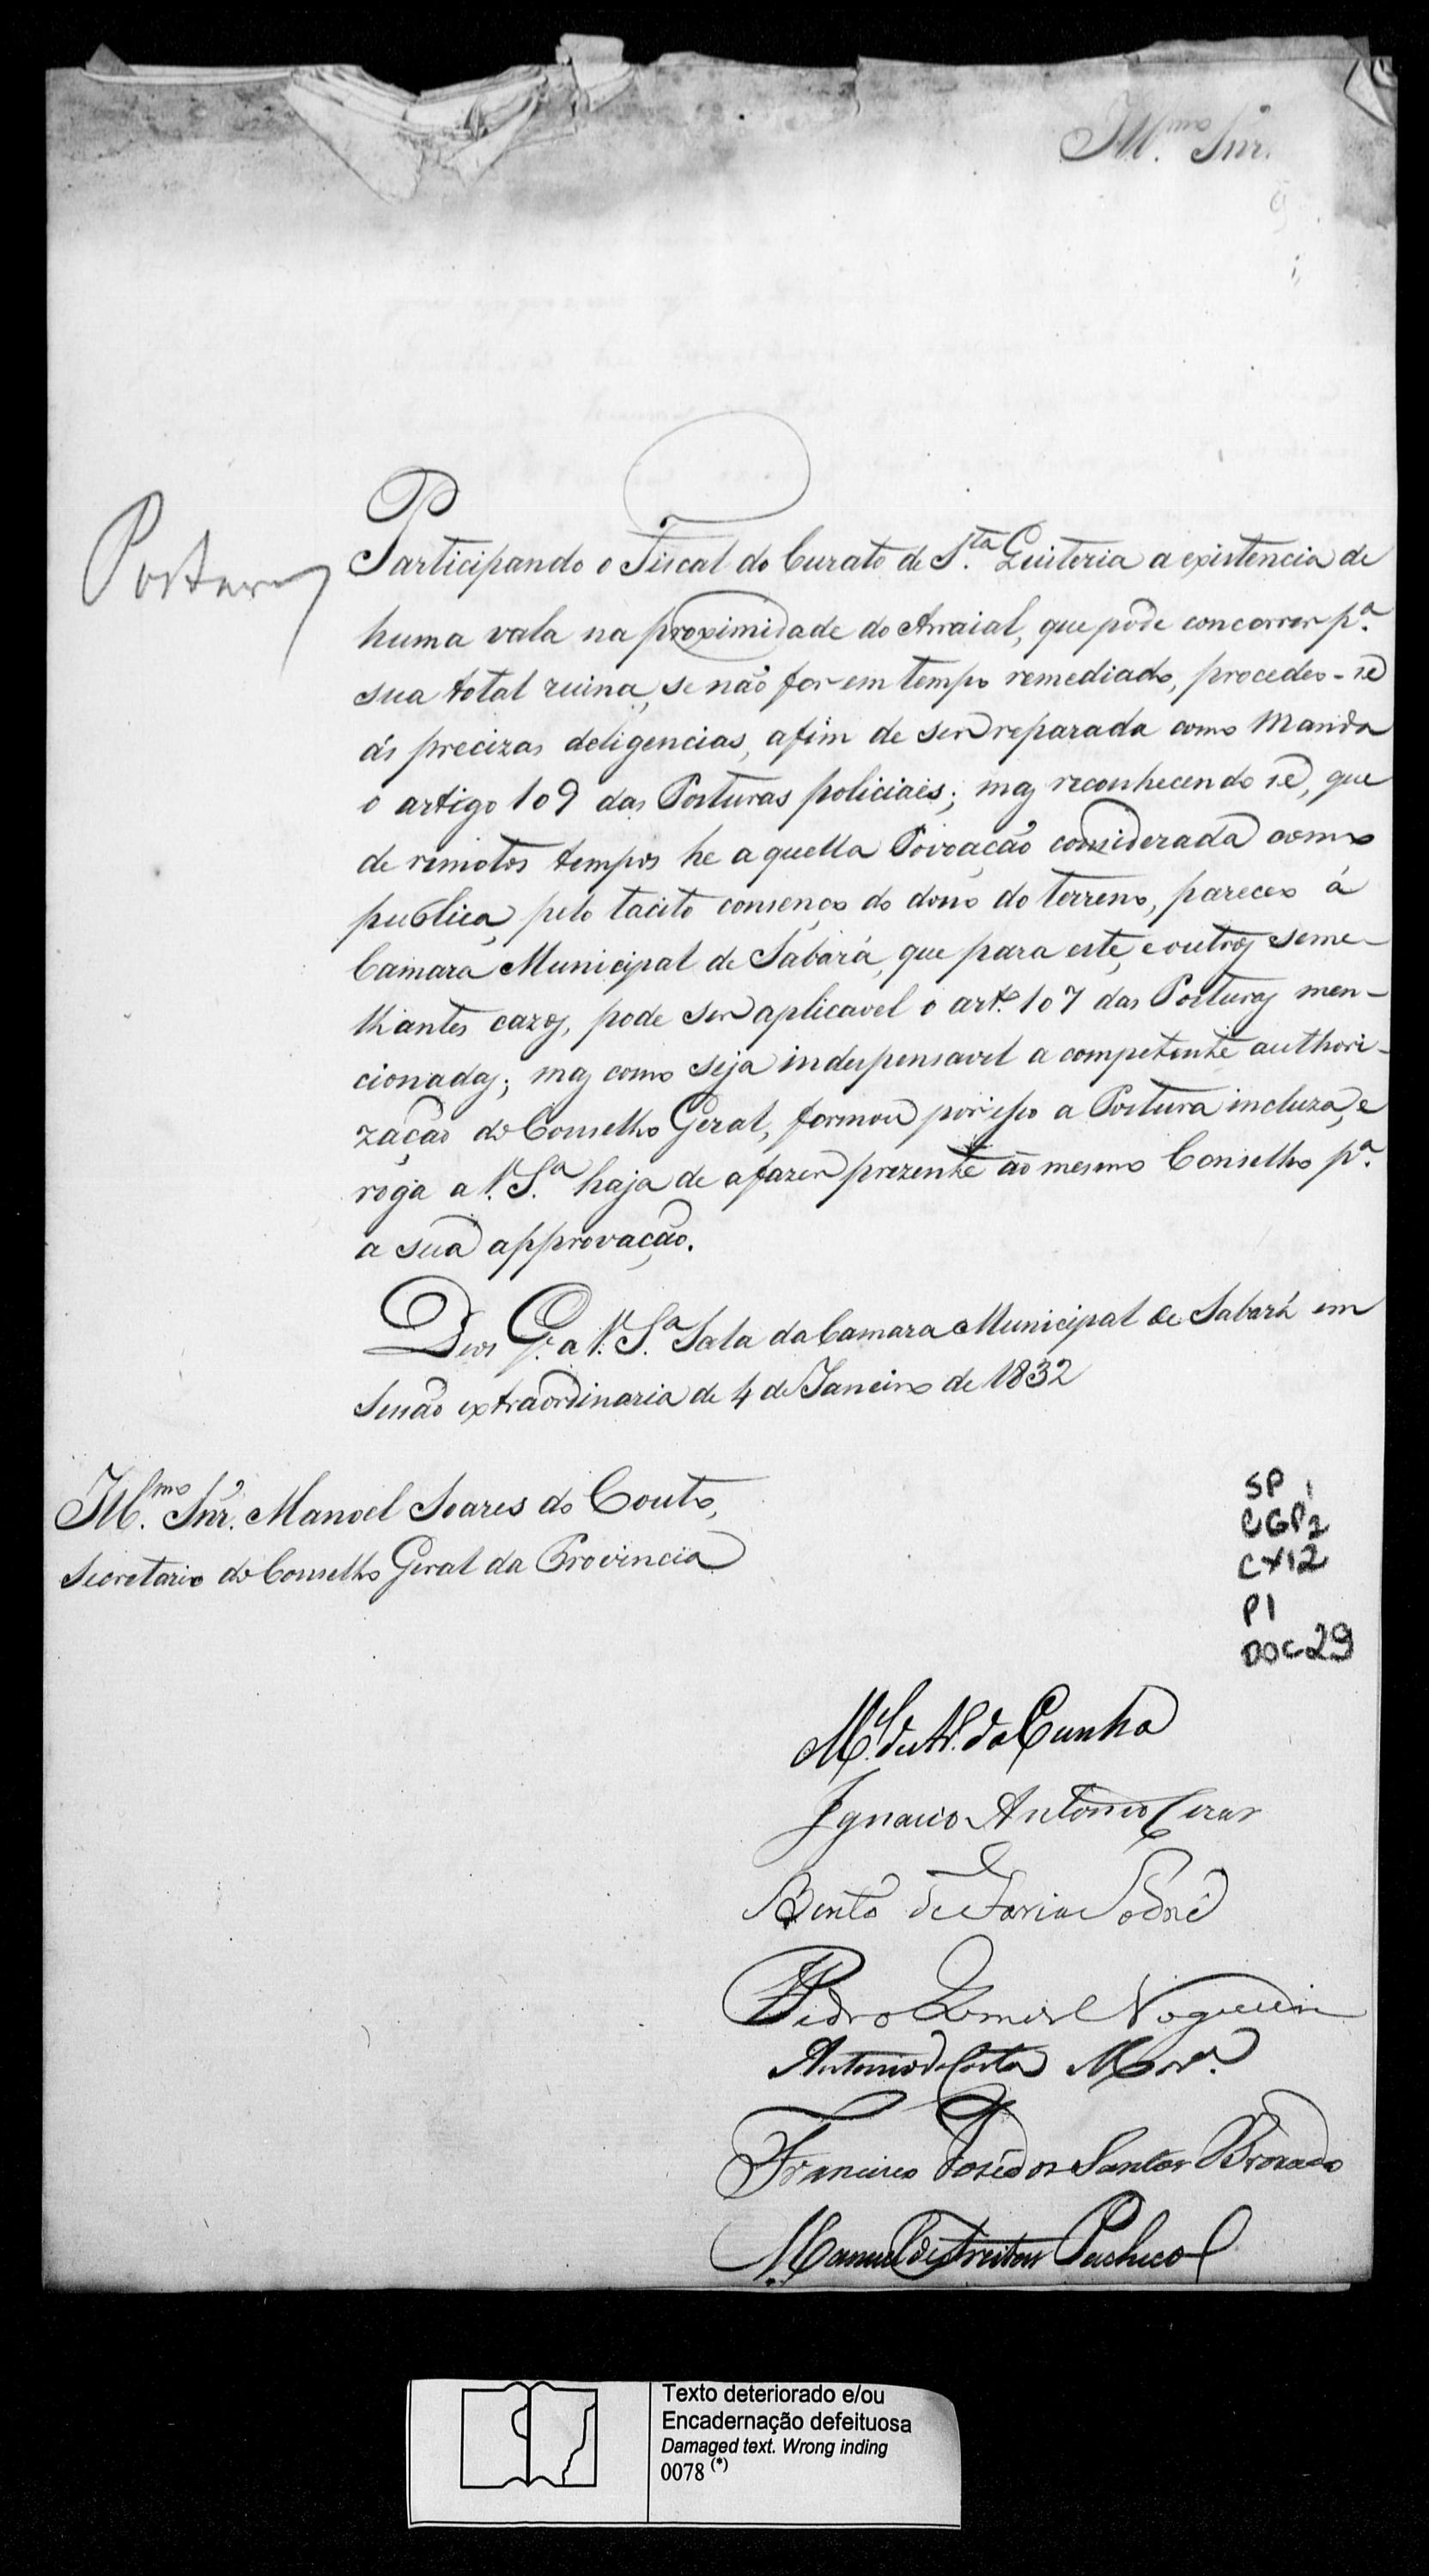 Ill.mo Snr.
Posturas
Participando o Fiscal do Curato de S.ta Quiteria a existencia de
huma vala na proximidade do Arraial, que póde concorrer p.a
sua total ruina, se não for em tempo remediado, procedeo-se
ás precizas deligencias, afim de ser reparada como manda
o artigo 109 das Posturas policiaes; mas reconhecendo se, que
de remotos tempos he aquella Povoação considerada como
publica, pelo tacito consenço do dono do terreno, pareceo á
Camara Municipal de Sabará, que para este, e outros seme-
lhantes cazos, pode ser aplicavel o art.o 107 das Posturas men-
cionadas; mas como seja indespensavel a competente authori-
zação do Conselho Geral, formou por isso a Postura incluza, e
roga a V. S.a haja de a fazer prezente ao mesmo Conselho p.a
a sua approvação.
Deos G.e a V. S.a Sala da Camara Municipal de Sabará em
Sessão extraordinaria de 4 de Janeiro de 1832
Ill.mo Snr. Manoel Soares do Couto,
Secretario do Conselho Geral da Provincia
SP
CGP2
CX12
P1
DOC29
M.el da Cunha
Ignacio Antonio Cezar
Bento de Faria Sodré
Pedro Gomes Nogueira
Antonio da Costa Mor.a
Francisco José dos Santos Brochado
Manuel de Freitas Pacheco
Texto deteriorado e/ou
Encadernação defeituosa
Damaged text. Wrong inding
0078 (*)